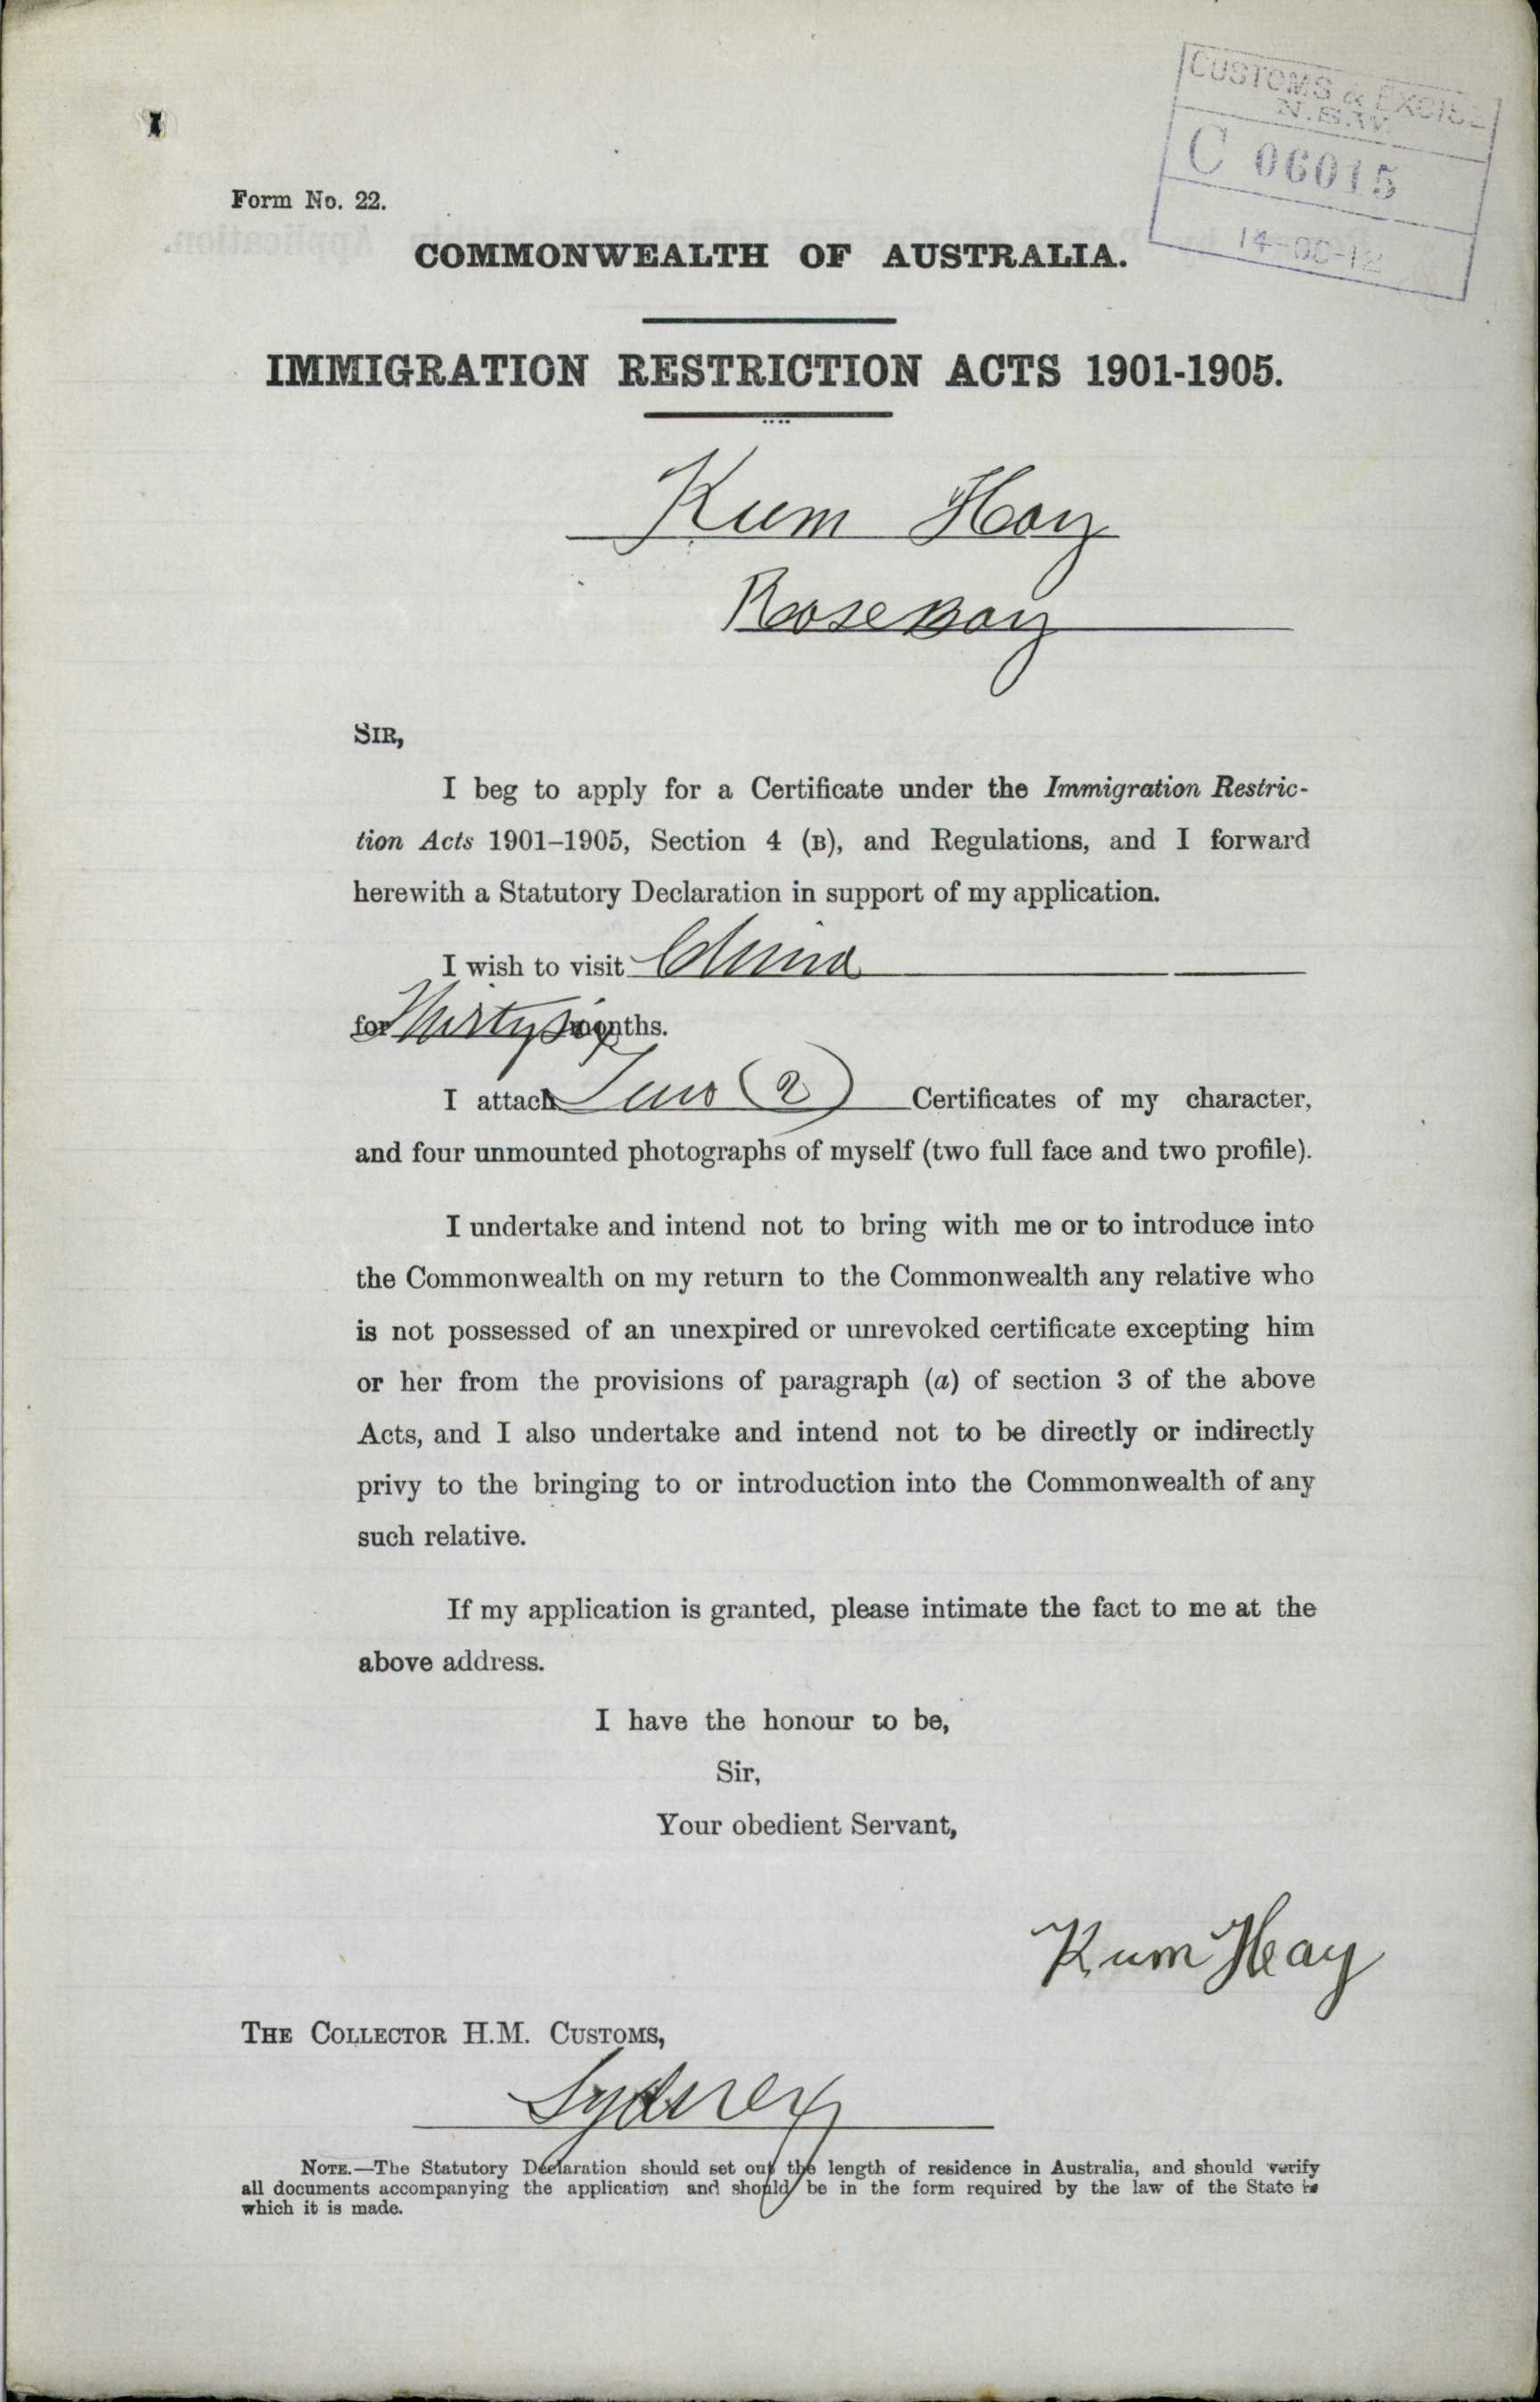 CUSTOMS & EXCISE
N.S.W.
C 06015
Form No. 22.
COMMONWEALTH OF AUSTRALIA.
IMMIGRATION RESTRICTION ACTS 1901-1905.
Kum Hoy
Rose Bay
SIR,
I beg to apply for a Certificate under the Immigration Restric-
tion Acts 1901–1905, Section 4 (B), and Regulations, and I forward
herewith a Statutory Declaration in support of my application.
I wish to visit China
for Thirty six months.
I attach Two (2) Certificates of my character,
and four unmounted photographs of myself (two full face and two profile).
I undertake and intend not to bring with me or to introduce into
the Commonwealth on my return to the Commonwealth any relative who
is not possessed of an unexpired or unrevoked certificate excepting him
or her from the provisions of paragraph (a) of section 3 of the above
Acts, and I also undertake and intend not to be directly or indirectly
privy to the bringing to or introduction into the Commonwealth of any
such relative.
If my application is granted, please intimate the fact to me at the
above address.
I have the honour to be,
Sir,
Your obedient Servant,
Kum Hay
THE COLLECTOR H.M. CUSTOMS,
Sydney
NOTE.—The Statutory Declaration should set out the length of residence in Australia, and should verify
all documents accompanying the application and should be in the form required by the law of the State in
which it is made.